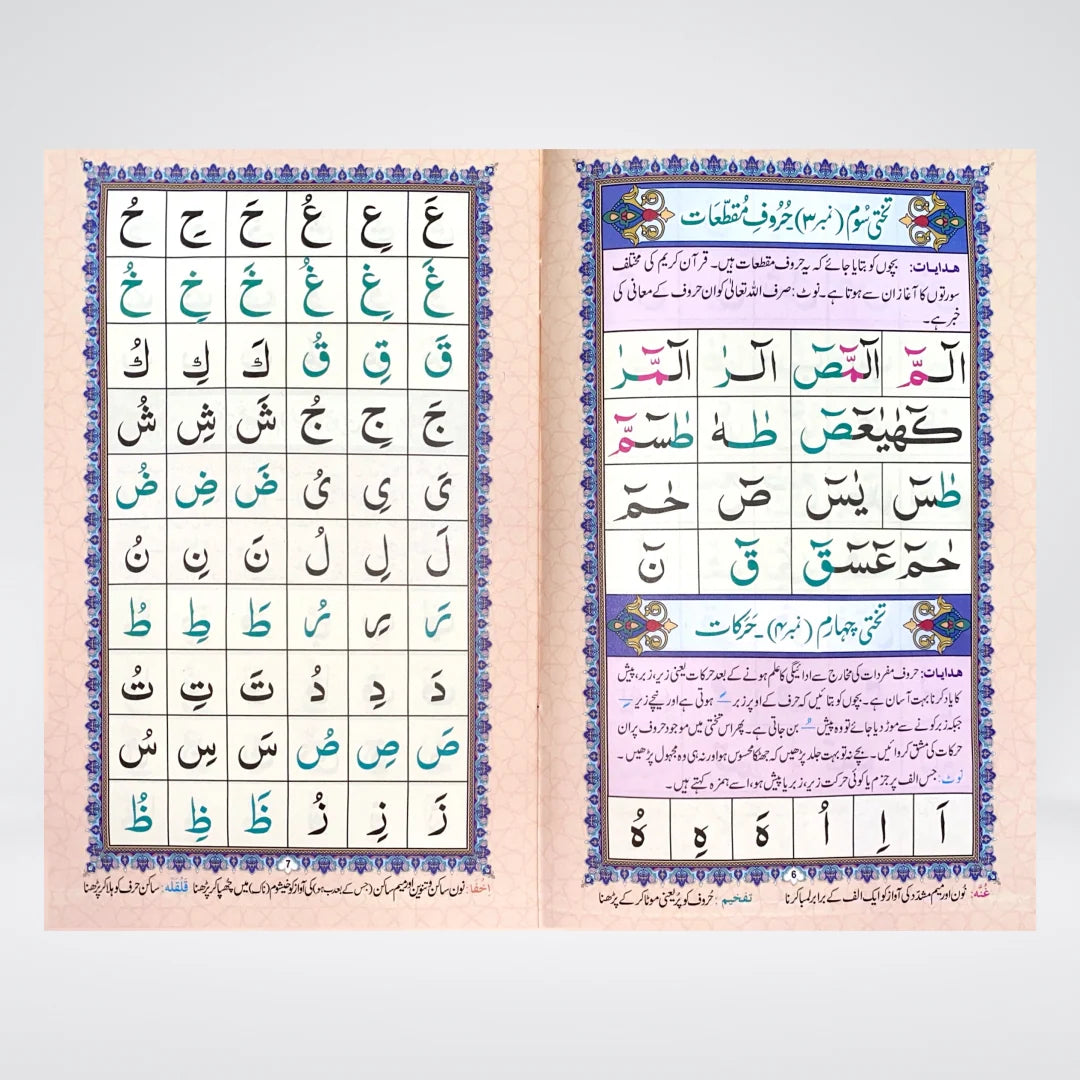 تختی سُوم (نمبر ۳) حُروفِ مُقطّعات
ھدایات: بچوں کو بتایا جائے کہ یہ حروف مقطعات ہیں۔ قرآن کریم کی مختلف
سورتوں کا آغاز ان سے ہوتا ہے۔ نوٹ: صرف اللہ تعالیٰ کو ان حروف کے معانی کی
خبر ہے۔
الٓـمّٓ الٓمّٓصٓ الٓـرٰ الٓـمّٓـرٰ
كٓهٰيٰعٓصٓ طٰـهٰ طٰسٓمّٓ
طٰسٓ يٰسٓ صٓ حٰمٓ
حٰمٓ عٓسٓقٓ قٓ نٓ
تختی چہارم (نمبر ۴)۔ حَرَکات
ھدایات: حروف مفردات کی مخارج سے ادائیگی کا علم ہونے کے بعد حرکات یعنی زیر، زبر، پیش
کا یاد کرنا بہت آسان ہے۔ بچوں کو بتائیں کہ حرف کے اوپر زبر ـَ ہوتی ہے اور نیچے زیر ـِ
جبکہ زبر کو نے سے موڑ دیا جائے تو وہ پیش ـُ بن جاتی ہے۔ پھر اس تختی میں موجود حروف پر ان
حرکات کی مشق کروائیں۔ بچے نہ تو بہت جلد پڑھیں کہ جھٹکا محسوس ہو اور نہ ہی وہ مجہول پڑھیں۔
نوٹ: جس الف پر جزم یا کوئی حرکت زیر، زبر یا پیش ہو، اسے ہمزہ کہتے ہیں۔
اَ اِ اُ هَ هِ هُ
6
غُنّه: نون اور میم مشدّد کی آواز کو ایک الف کے برابر لمبا کرنا تفخیم: حُروف کو پُر یعنی موٹا کر کے پڑھنا
عَ عِ عُ حَ حِ حُ
غَ غِ غُ خَ خِ خُ
قَ قِ قُ كَ كِ كُ
جَ جِ جُ شَ شِ شُ
یَ یِ یُ ضَ ضِ ضُ
لَ لِ لُ نَ نِ نُ
رَ رِ رُ طَ طِ طُ
دَ دِ دُ تَ تِ تُ
صَ صِ صُ سَ سِ سُ
زَ زِ زُ ظَ ظِ ظُ
7
اخفا: نون ساکن و تنوین اور میم ساکن (جس کے بعد ب ہو) کی آواز کو خیشوم (ناک) میں چُھپا کر پڑھنا قلقله: ساکن حرف کو ہلا کر پڑھنا